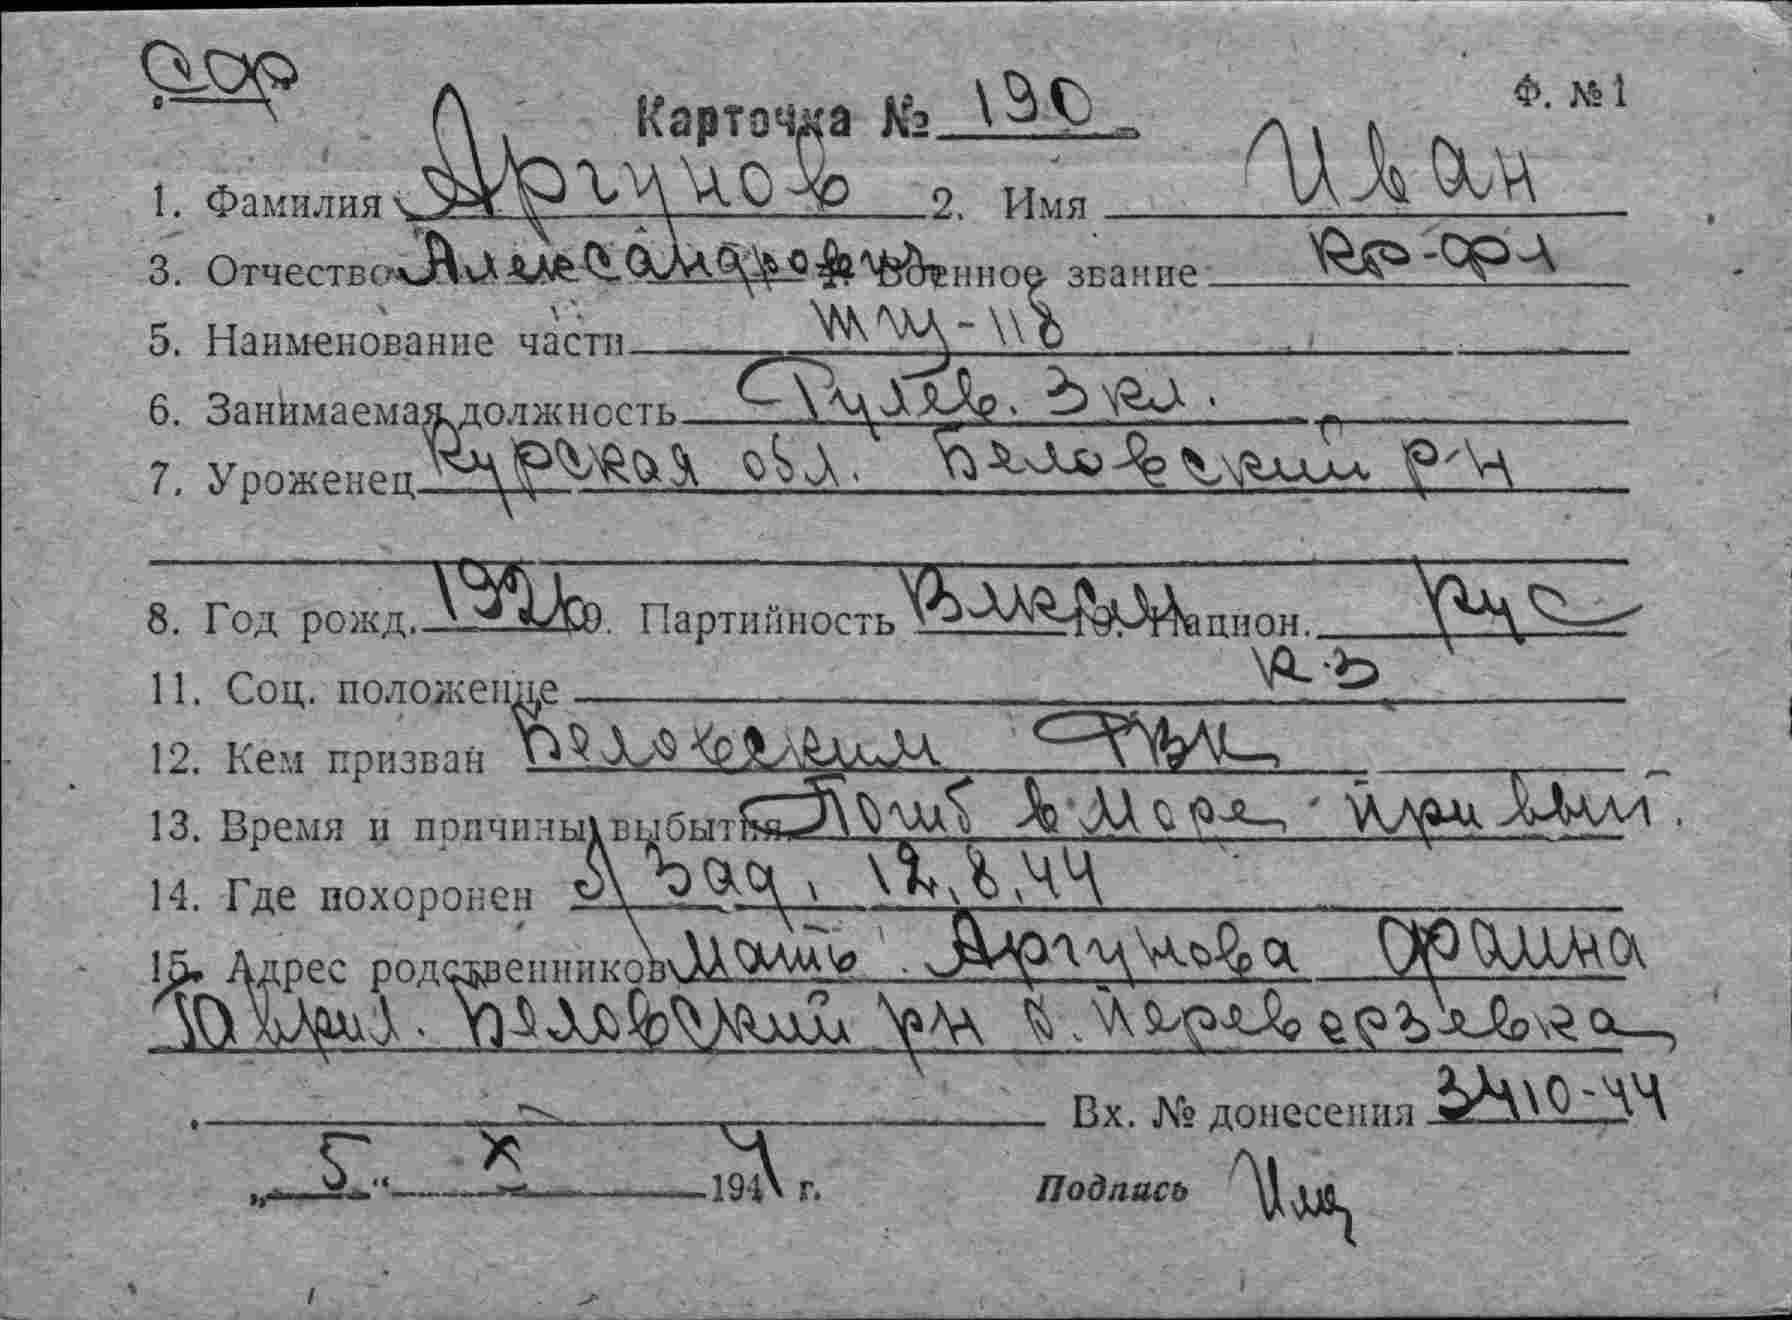 Ф. №1
Карточка № 190
1. Фамилия Аргунов 2. Имя Иван
3. Отчество Александрович 4. Военное звание кр-фл
5. Наименование части тщ-118
6. Занимаемая должность Рулев. 3 кл.
7. Уроженец Курская обл. Беловский р-н
8. Год рожд. 1926 9. Партийность ВЛКСМ 10. Национ. рус
11. Соц. положение к-з
12. Кем призван Беловским РВК
13. Время и причины выбытия Погиб в море при вып.
14. Где похоронен б/зад. 12.8.44
15. Адрес родственников мать Аргунова
Беловский рн с. Переверзевка
Вх. № донесения 3410-44
„ 5 “ X 1944 г. Подпись